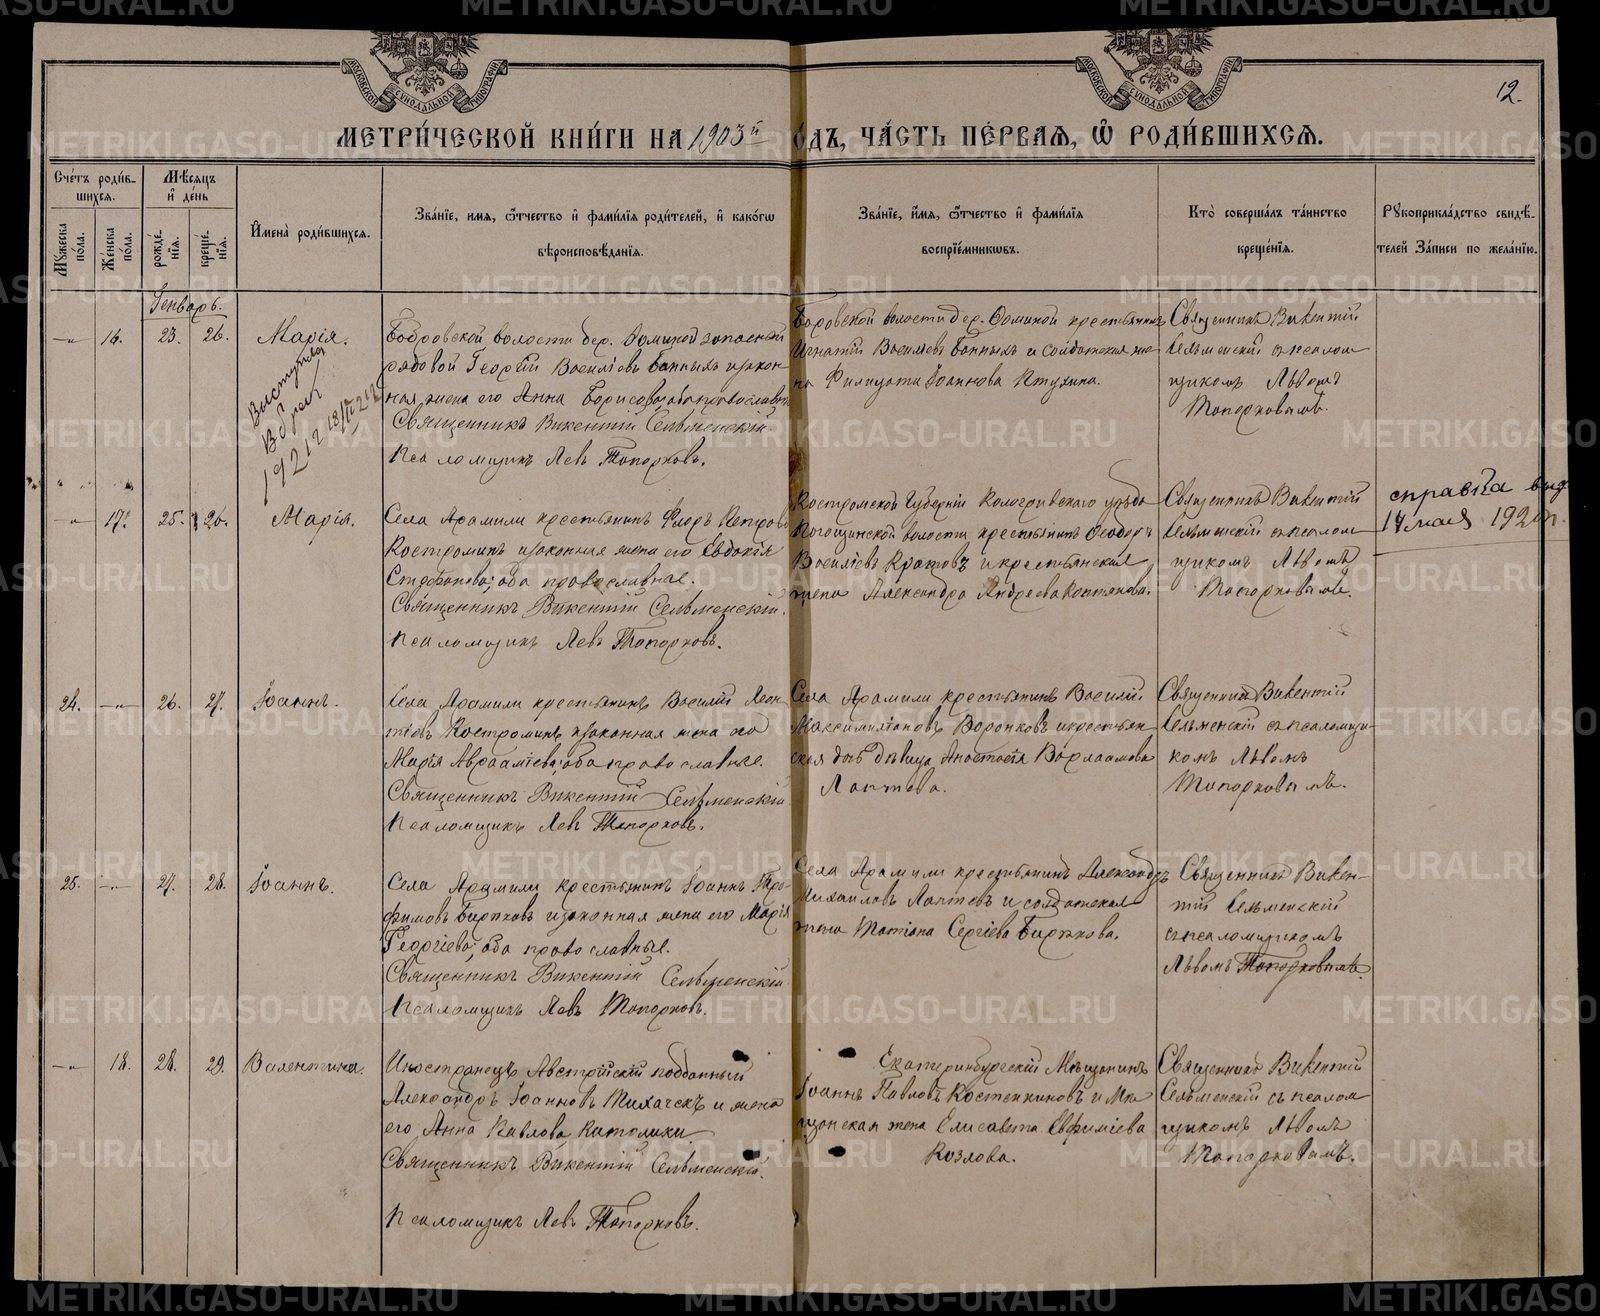 12.
МЕТРИ́ЧЕСКОЙ КНИ́ГИ НА 1903й
О́ДЪ, ЧА́СТЬ ПЕ́РВАЯ, Ѡ РОДИ́ВШИХСѦ.
Сче́тъ роди́в-
шихсѧ.
Мѣ́сѧцъ
и҆ де́нь
Мꙋ́жеска
по́ла.
Же́нска
по́ла.
рожде́-
нїѧ.
креще́-
нїѧ.
И҆мена̀ роди́вшихсѧ.
Зва́нїе, и́мѧ, ѻ҆́тчество и҆ фами́лїѧ роди́телей, и҆ како́гѡ
вѣроисповѣ́данїѧ.
Зва́нїе, и́мѧ, ѻ҆́тчество и҆ фами́лїѧ
воспрїе́мниковъ.
Кто̀ соверша́лъ та́инство
креще́нїѧ.
Рꙋкоприкла́дство свидѣ́-
телей за́писи по жела́нїю.
Генварь.
—"— 16. 23. 26. Марія.
Бобровской волости дер. Фоминой запасный
рядовой Георгій Василіевъ Банныхъ и закон-
ная жена его Анна Борисова, оба православн
Священникъ Викентій Сельменскій.
Псаломщикъ Левъ Топорковъ.
Бобровской волости дер. Фоминой крестьянинъ
Игнатій Василіевъ Банныхъ и солдатская же-
на Филицата Іоаннова Птухина.
Священникъ Викентій
Сельменскій съ псалом
щикомъ Львомъ
Топорковымъ.
Выступила
въ бракъ
1921 г.
—"— 17. 25. 26. Марія.
Села Арамили крестьянинъ Флоръ Петровъ
Костроминъ и законная жена его Евдокія
Стефанова, оба православные.
Священникъ Викентій Сельменскій.
Псаломщикъ Левъ Топорковъ.
Костромской губерніи Кологривскаго уѣзда
волости крестьянинъ Ѳеодоръ
Василіевъ Кратовъ и крестьянская
жена Александра Андреева
Священникъ Викентій
Сельменскій съ псалом
щикомъ Львомъ
Топорковымъ.
справка выд
14 мая 192
24. —"— 26. 27. Іоаннъ.
Села Арамили крестьянинъ Василій Леон
тіевъ Костроминъ и законная жена его
Марія Авраамiева, оба православные.
Священникъ Викентій Сельменскій
Псаломщикъ Левъ Топорковъ.
Села Арамили крестьянинъ Василій
Максимиліановъ Воронковъ и крестьян
ская дочь дѣвица Анастасія Варлаамова
Лаптева.
Священникъ Викентій
Сельменскій съ псаломщи-
комъ Львомъ
Топорковымъ.
25. —"— 27. 28. Іоаннъ.
Села Арамили крестьянинъ Іоаннъ Тро-
фимовъ Бирюковъ и законная жена его Марія
Георгіева, оба православные.
Священникъ Викентій Сельменскій
Псаломщикъ Левъ Топорковъ.
Села Арамили крестьянинъ Александръ
Михаиловъ Лаптевъ и солдатская
жена Татіана Сергіева Бирюкова.
Священникъ Викен-
тій Сельменскій
съ псаломщикомъ
Львомъ Топорковымъ.
—"— 18. 28. 29. Валентина.
Иностранецъ Австрійскій подданный
Александръ Іоанновъ Тихачекъ и жена
его Анна Павлова, католики.
Священникъ Викентій Сельменскій.
Псаломщикъ Левъ Топорковъ.
Екатеринбургскій мѣщанинъ
Іоаннъ Павловъ Костенкиновъ и мѣ
щанская жена Елисавета Евфиміева
Козлова.
Священникъ Викентій
Сельменскій съ псалом
щикомъ Львомъ
Топорковымъ.
METRIKI.GASO-URAL.RU